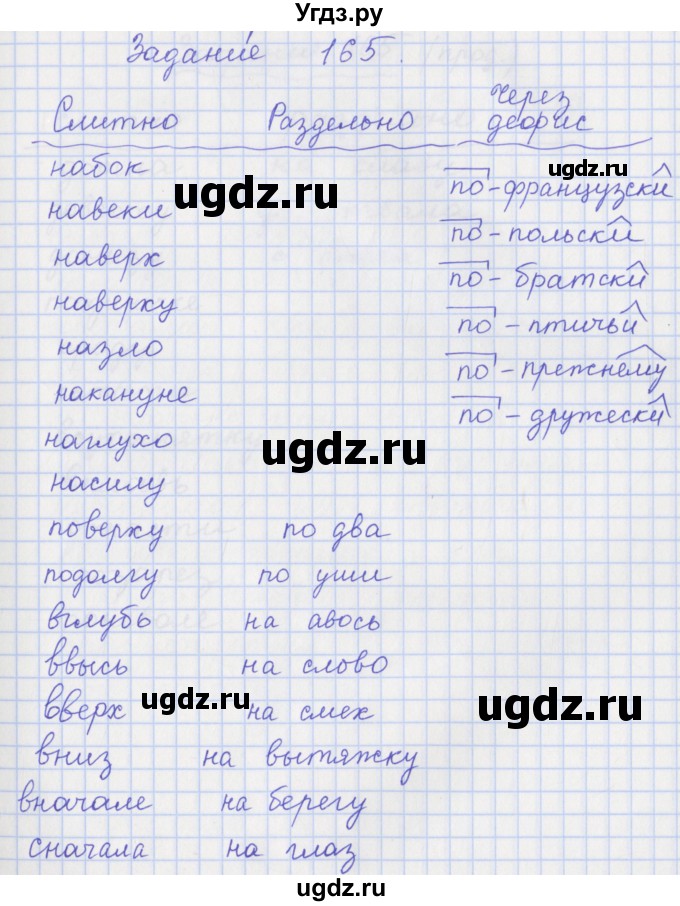 Угдз.ру
Задание 165.
Слитно Раздельно Через дефис
набок
по-французски
навеки
по-польски
наверх
по-братски
наверху
по-птичьи
назло
по-прежнему
накануне
по-дружески
наглухо
насилу
поверху по два
подолгу по уши
вглубь на авось
ввысь на слово
вверх на смех
вниз на вытяжку
вначале на берегу
сначала на глаз
ugdz.ru
ugdz.ru
ugdz.ru
ugdz.ru
ugdz.ru